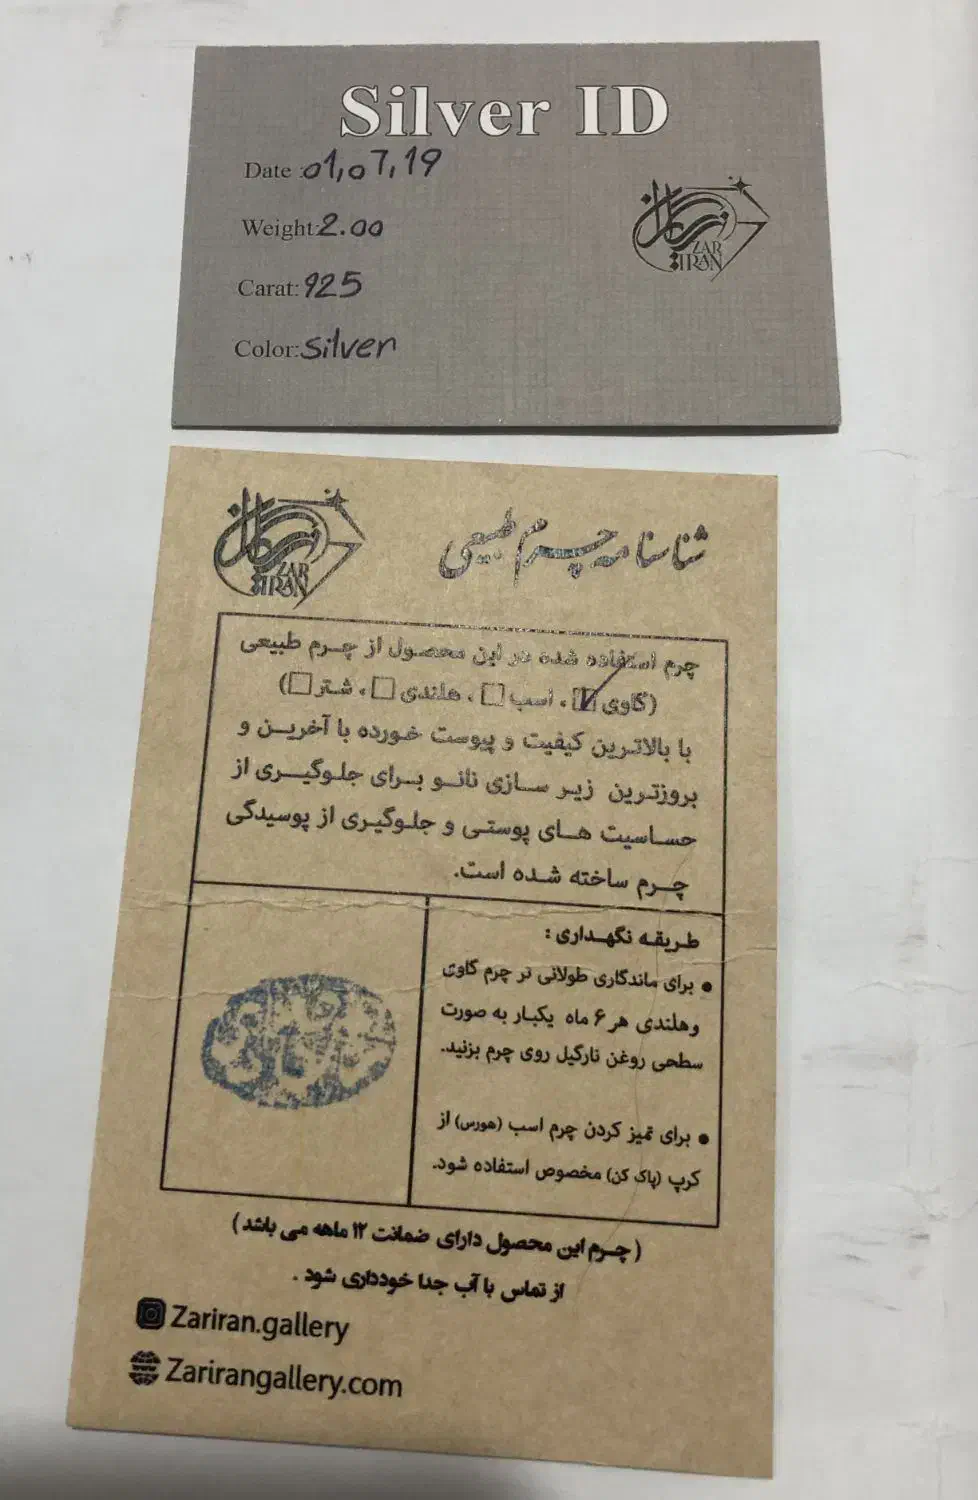 Silver ID
Date :01,07,19
Weight:2.00
Carat:925
Color:silver
زرایران
ZAR
IRAN
زرایران
ZAR
IRAN
شناسنامه چرم طبیعی
چرم استفاده شده در این محصول از چرم طبیعی
(گاوی ☑ ، اسب □ ، هلندی □ ، شتر □)
با بالاترین کیفیت و پیوست خورده با آخرین و
بروزترین زیر سازی نانو برای جلوگیری از
حساسیت های پوستی و جلوگیری از پوسیدگی
چرم ساخته شده است.
طریقه نگهداری :
• برای ماندگاری طولانی تر چرم گاوی
وهلندی هر ۶ ماه یکبار به صورت
سطحی روغن نارگیل روی چرم بزنید.
• برای تمیز کردن چرم اسب (هورس) از
کرپ (پاک کن) مخصوص استفاده شود.
( چرم این محصول دارای ضمانت ۱۲ ماهه می باشد )
از تماس با آب جدا خودداری شود .
Zariran.gallery
Zarirangallery.com